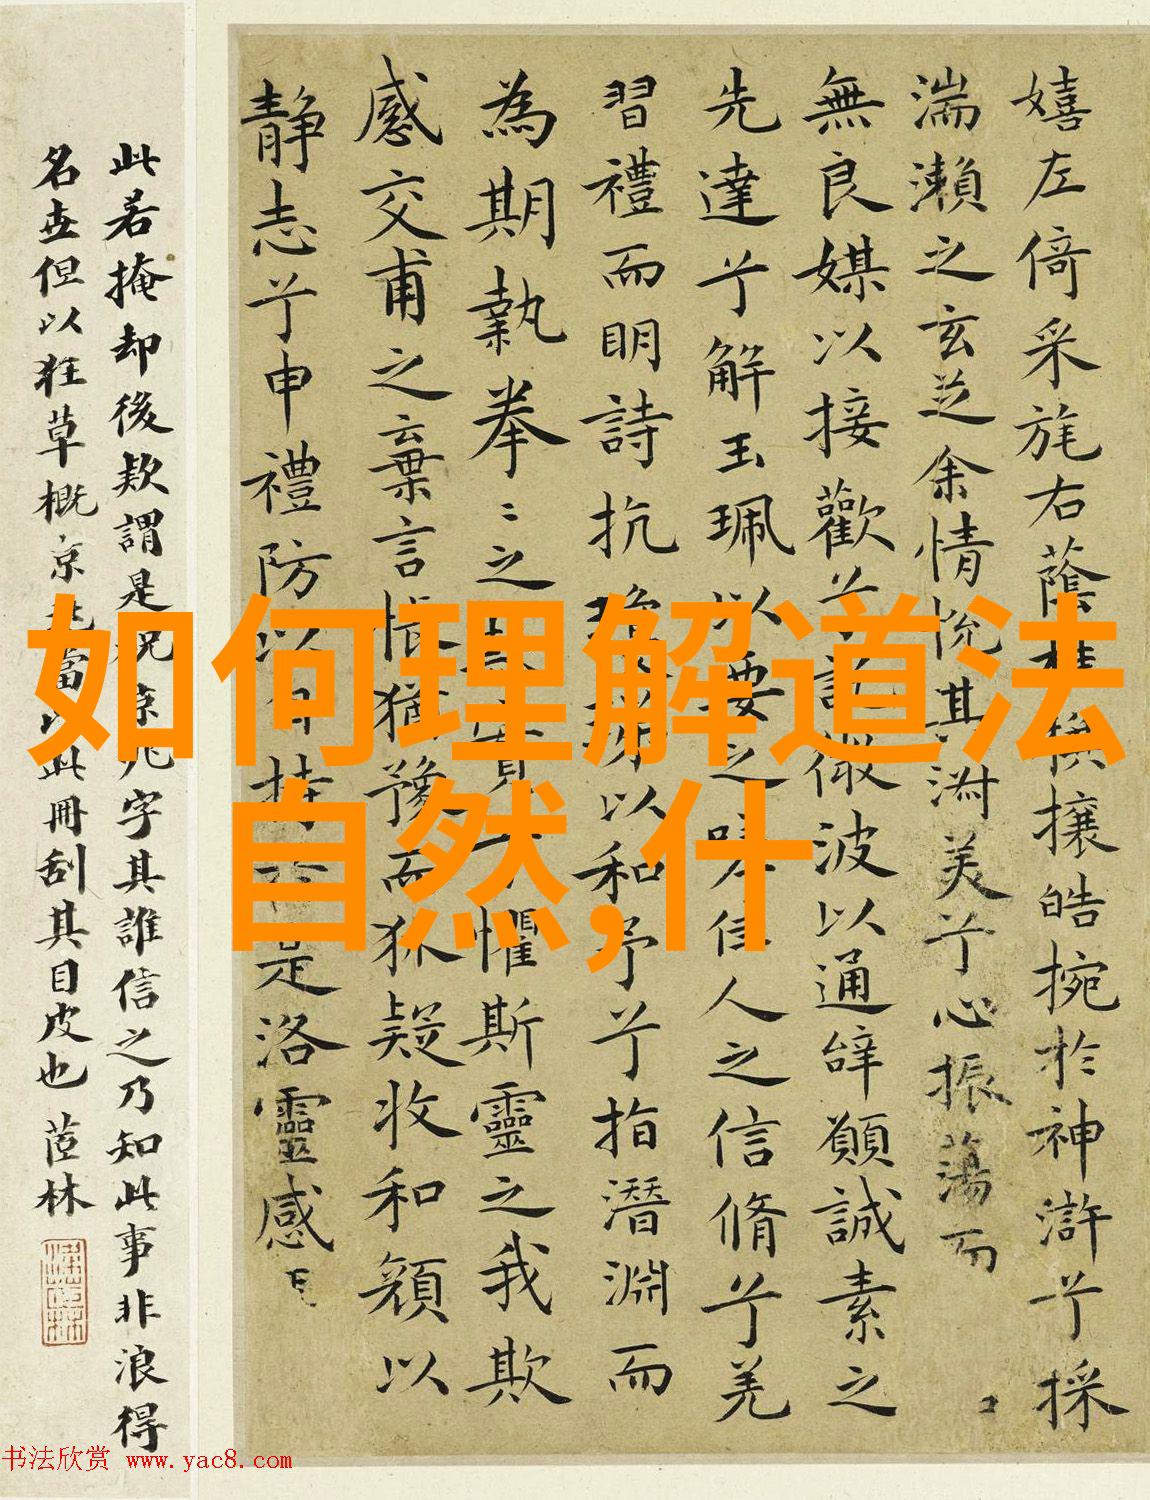 嬉左倚采旄右蔭桂攘皓捥於神滸兮採
湍瀨之玄芝余情悅其淑美兮心振蕩而
無良媒以接歡兮託微波以通辭願誠素之
先達兮解玉珮以要之嗟佳人之信脩兮羌
習禮而明詩抗以和予兮指潛淵而
為期執拳〻之懼斯靈之我欺
感交甫之棄言悵猶豫而狐疑收和顏以
靜志兮申禮防以自持於是洛靈感
此若掩却後款謂是字其誰信之乃知此事非浪得
名世但以狂草概京此冊刮其目皮也 茝林
如何理解道法
自然,什
书法欣赏 www.yac8.com